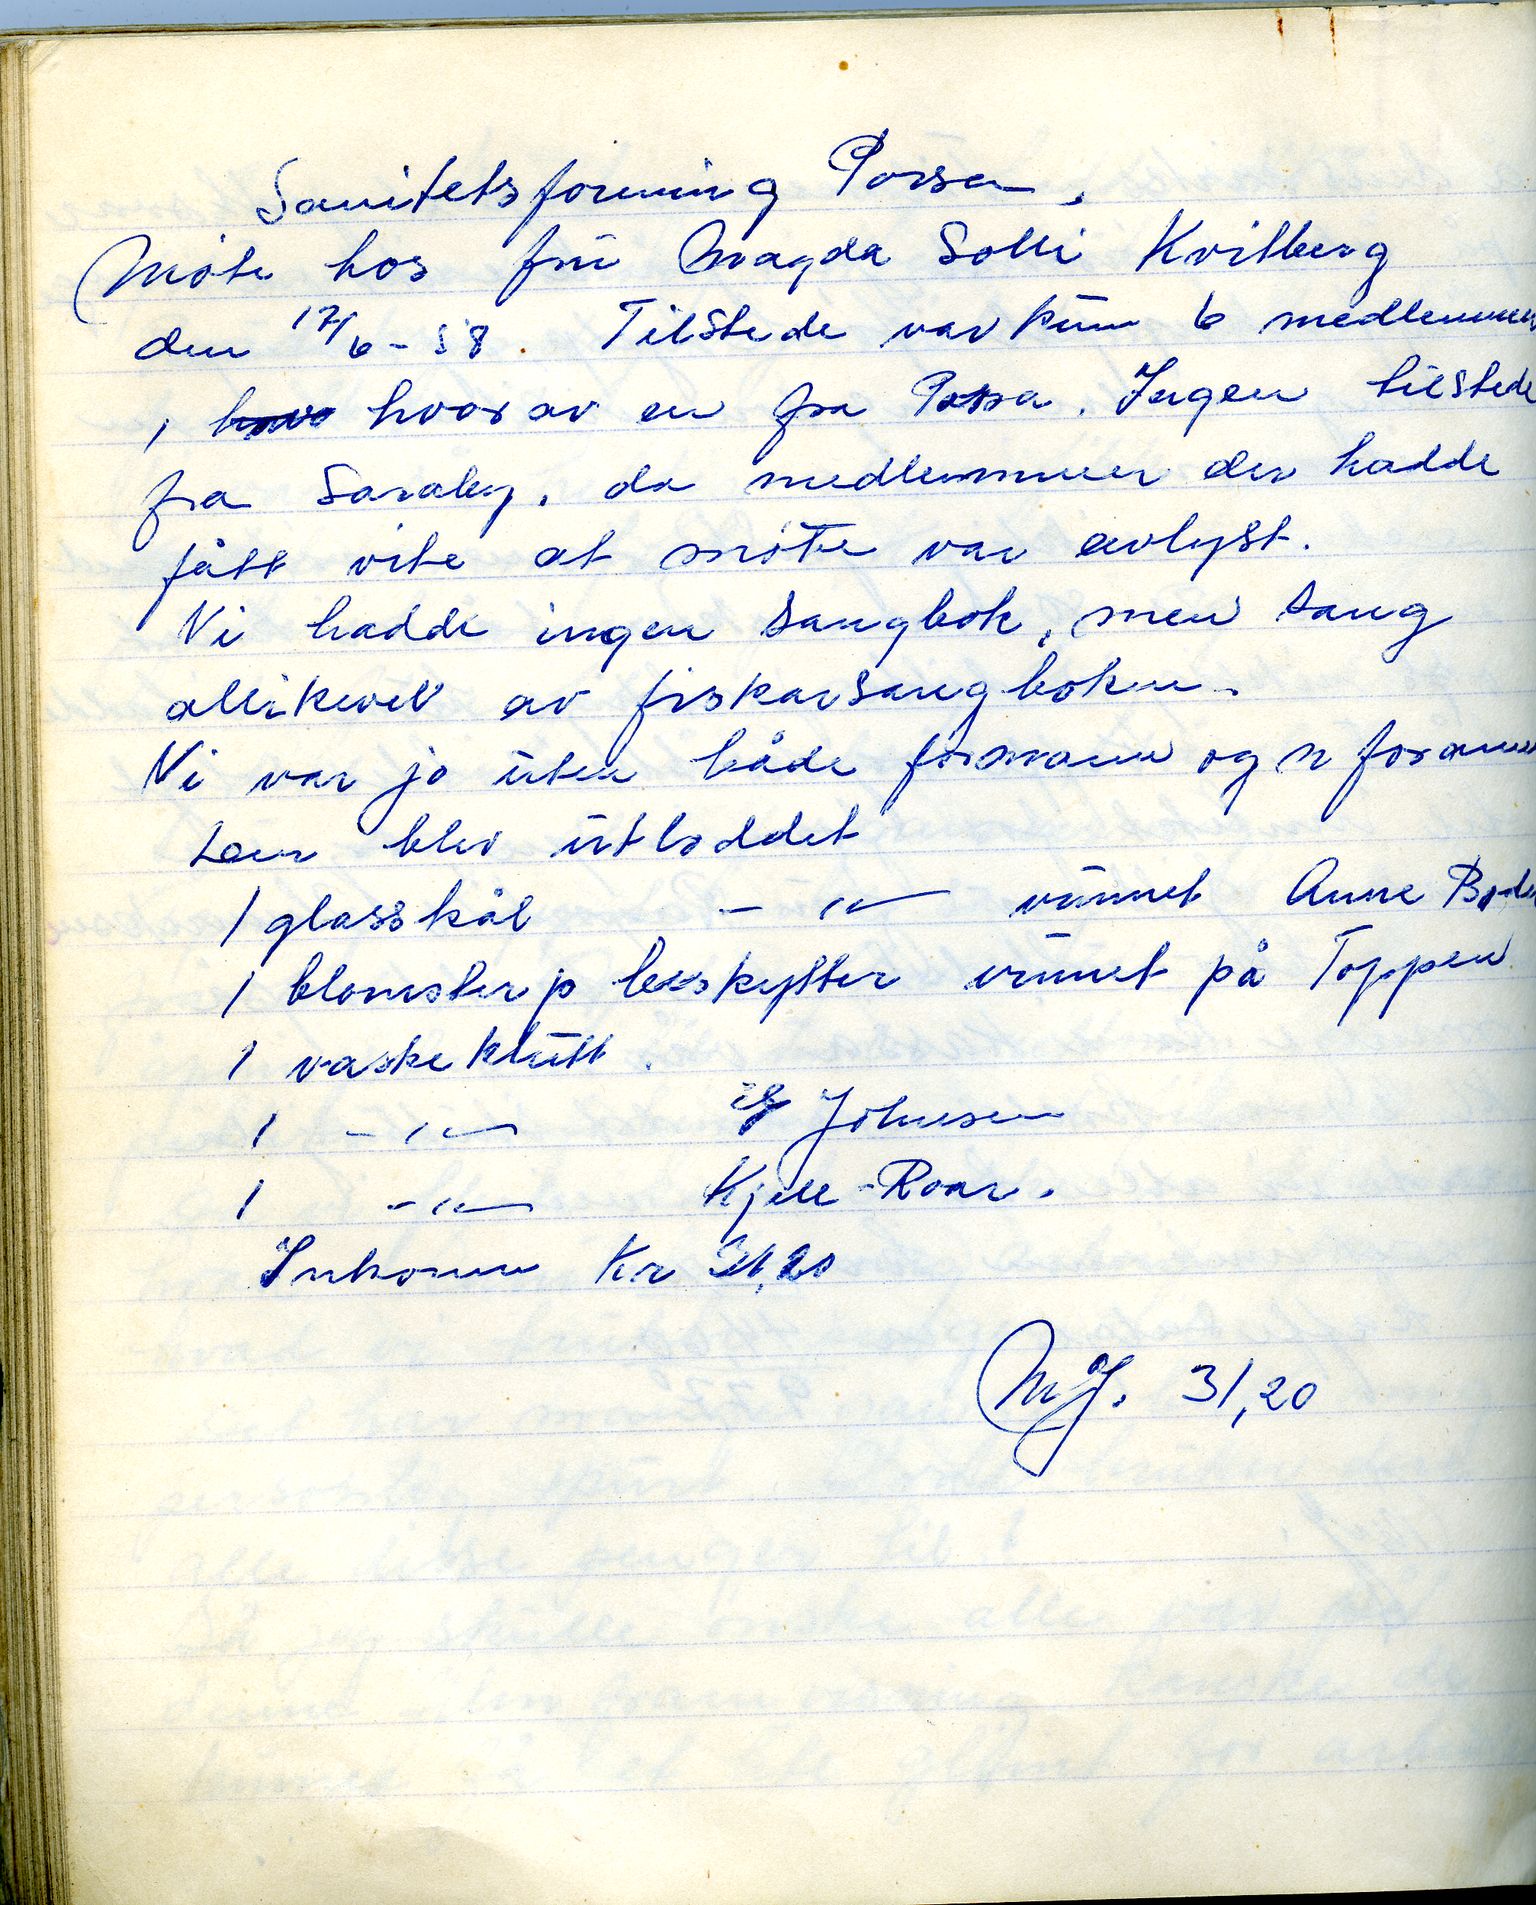 Sanitetsforening Porsa.
Møte hos frü Magda Solli Kvitberg
den 17/6-58. Tilstede var kün 6 medlemmer
, hvorav en fra Porsa. Ingen tilstede
fra Saraby, da medlemmer der hadde
fått vite at møte var avlyst.
Vi hadde ingen sangbok, men sang
allikevel av fiskarsangboken.
Vi var jo üten både formann og n formann
som blev ütloddet
1 glasskål - " - vünnet Anne
1 blomsterp beskytter vünnet på Toppen
1 vaskeklütt.
1 - " - Johnsen
1 - " - Kjell-Roar.
Inkomne Kr 31,20
MJ. 31,20